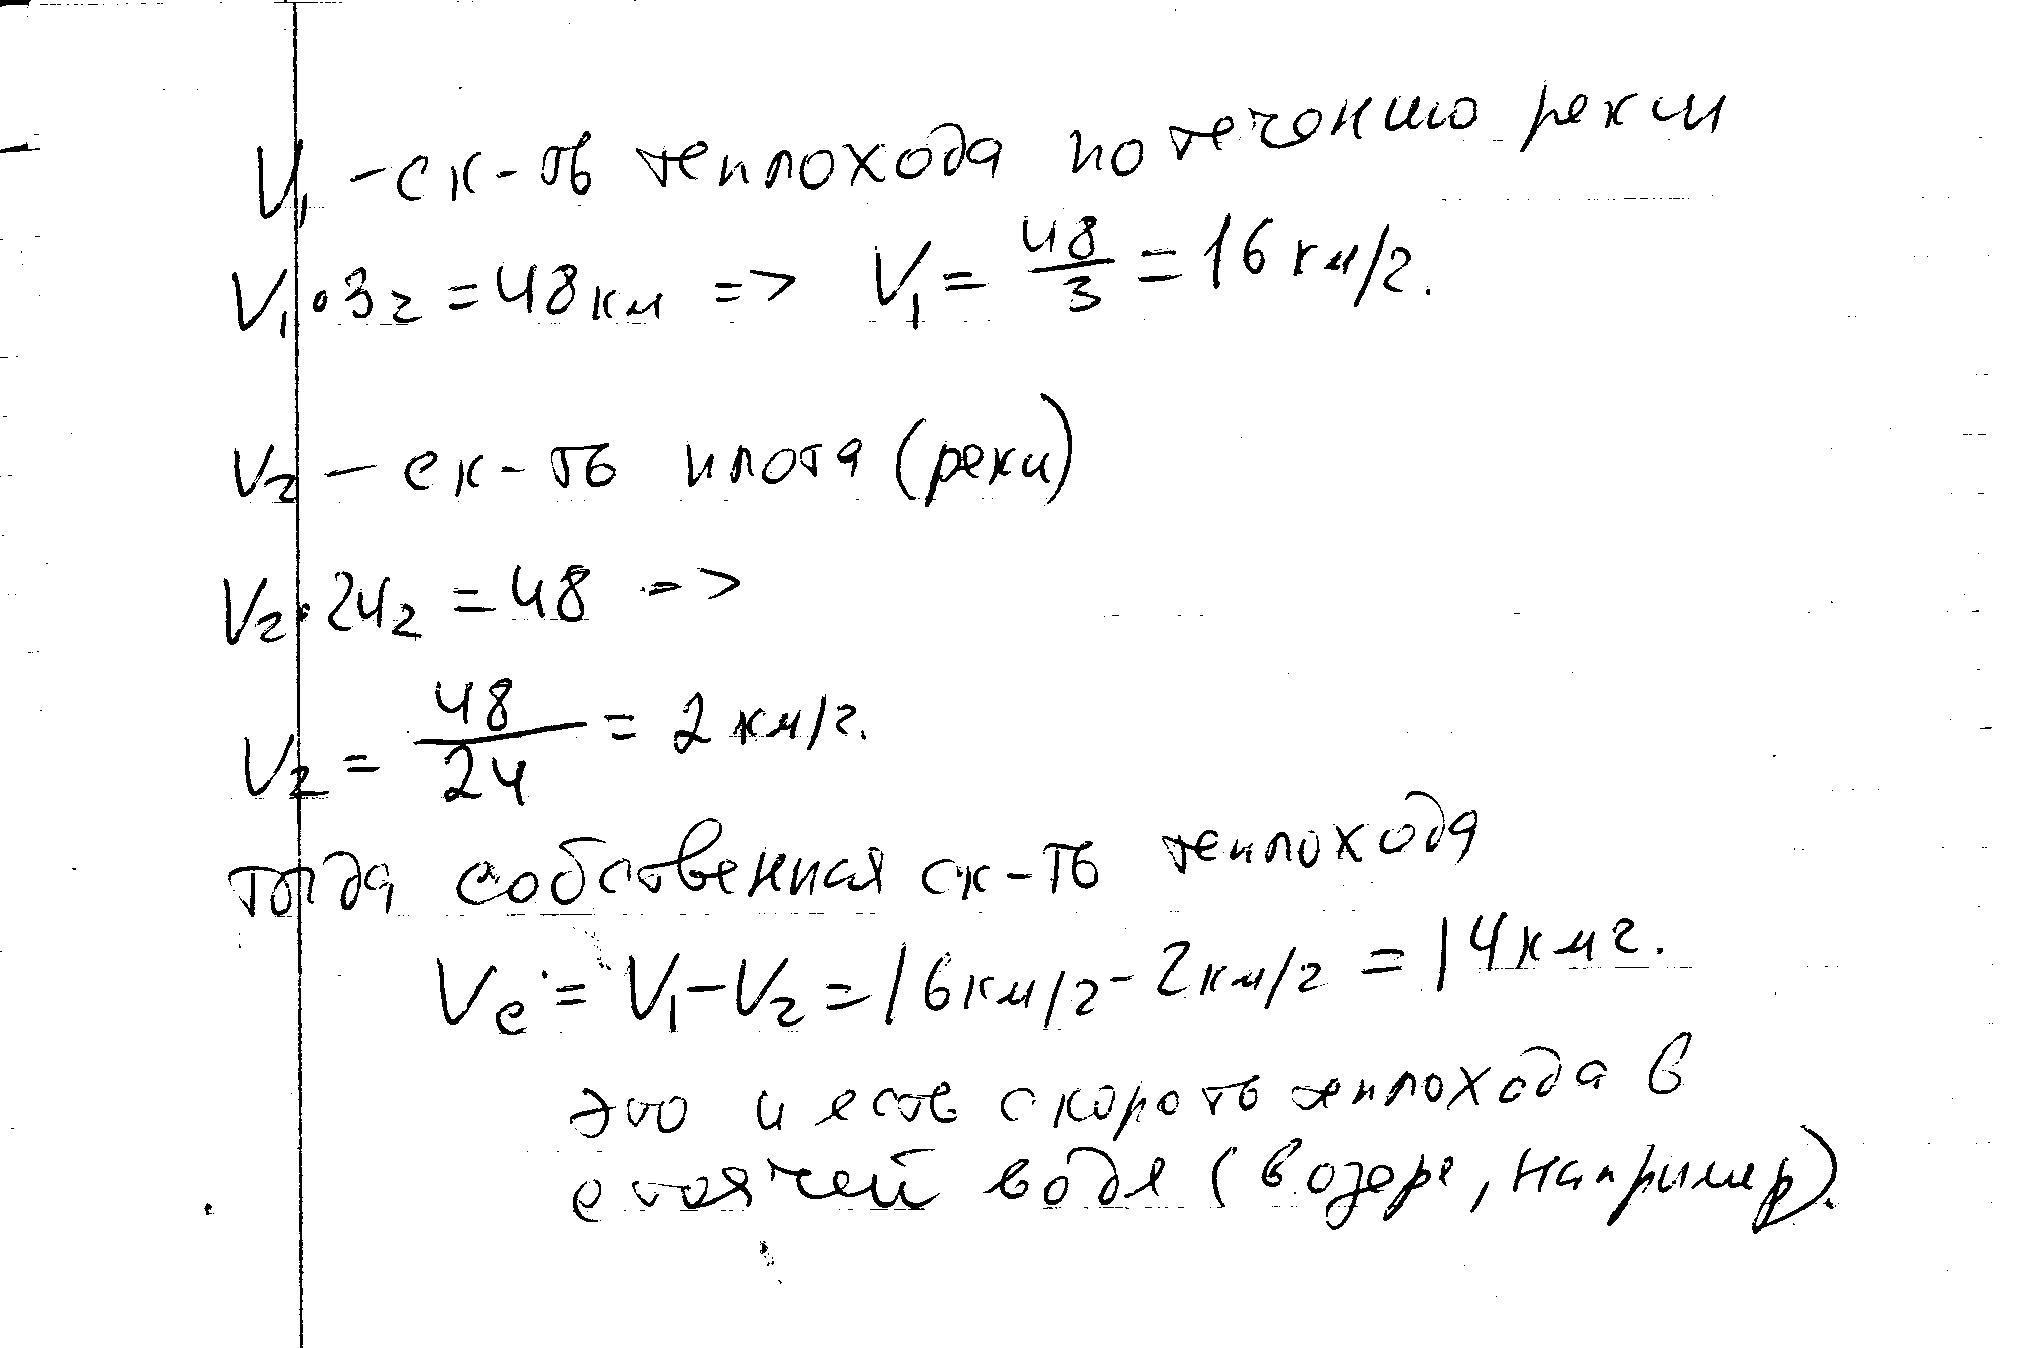 V₁ - ск-ть теплохода по течению реки
V₁ • 3ч = 48 км => V₁ = 48/3 = 16 км/ч.
V₂ - ск-ть плота (реки)
V₂ • 24ч = 48 =>
V₂ = 48/24 = 2 км/ч.
тогда собственная ск-ть теплохода
Vс = V₁ - V₂ = 16 км/ч - 2 км/ч = 14 км ч.
это и есть скороть теплохода в
стоячей воде (в озере, например).